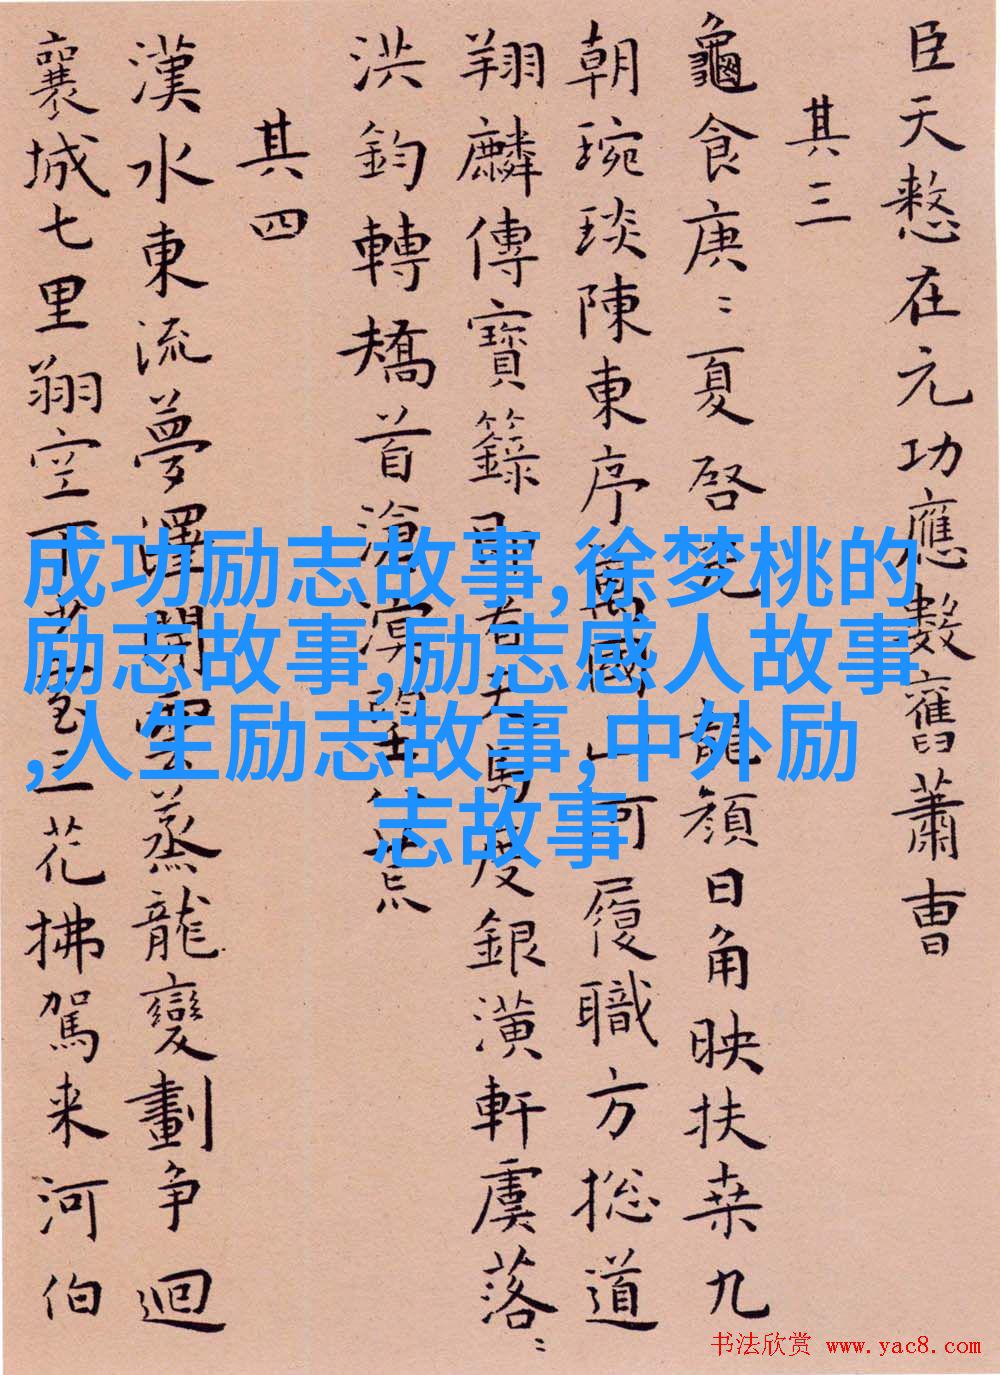 臣天憗在元功應數舊蕭曹
其三
龜食庚〻夏啓龍顏日角映扶桒九
朝琬琰陳東序萬國山河履職方揔道
翔麟傳寶籙天馬度銀潢軒虞落〻
洪鈞轉矯首滄溟荒
其四
漢水東流夢澤開雲蒸龍變劃争迴
襄城七里翔空下三花拂駕来河伯
成功励志故事,徐梦桃的
励志故事,励志感人故事
,人生励志故事,中外励
志故事
书法欣赏 www.yac8.com